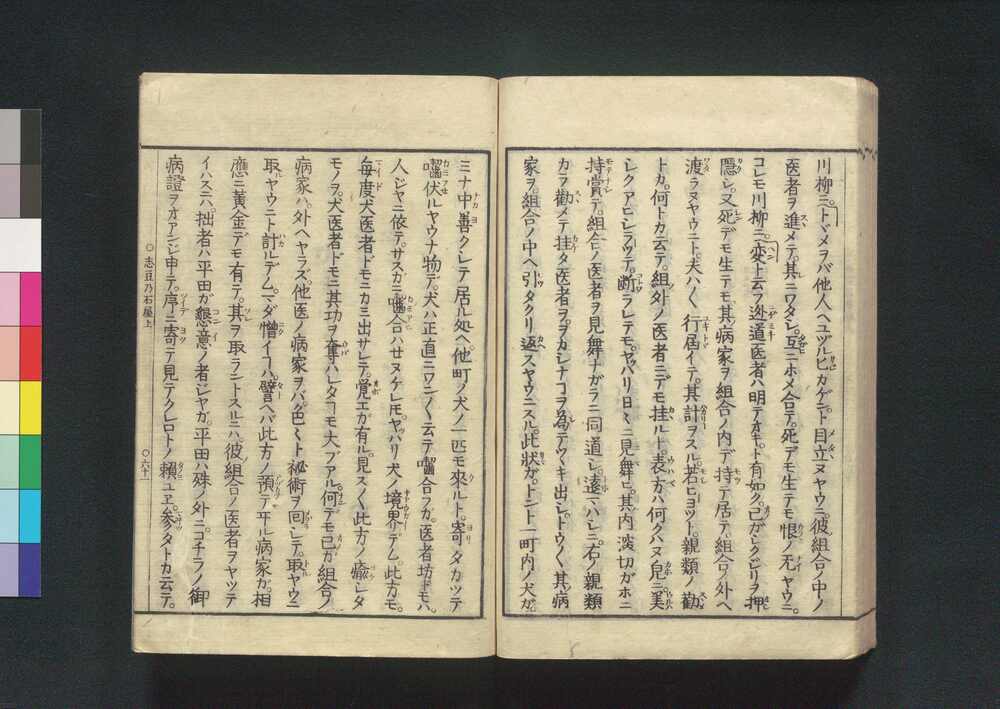 川柳ニ。トヾメヲバ他人ヘユヅルヒカゲント目立ヌヤウニ。彼組合ノ中ノ
医者ヲ進メテ。其ニワタシ。互ニホメ合テ。死デモ生テモ恨ノ無ヤウニ。
コレモ川柳ニ変ト云フ逃道医者ハ明テオキ。ト有如ク己ガシクジリヲ押
隠シ。又死デモ生テモ。其病家ヲ組合ノ内デ持テ居テ。組合ノ外ヘ
渡ラヌヤウニト。夫ハ〳〵行届イテ。其計ヲスル。若ヒヨツト。親類ノ勧
トカ。何トカ云テ。組外ノ医者ニデモ挂ルト。表方ハ何タハヌ皃ニ美
レクアヒシラツテ。断ラレテモ。ヤツパリ日〻ニ見舞ヒ。其内深切ガホニ
持賞テ。組合ノ医者ヲ見舞ナガラニ同道シ。遠マハシニ。右ノ親類
カラ勧メテ挂タ医者ヲ。ヲカシナコヲ為テツヽキ出シ。トウ〳〵其病
家ヲ。組合ノ中ヘ引タクリ返スヤウニスル。此状ガ。トント一町内ノ犬ガ。
ミナ中善クシテ居ル処ヘ他町ノ犬ノ一匹モ來ルト。寄タカツテ
囓伏ルヤウナ物デ。犬ハ正直ニワン〳〵云テ囓合フガ。医者坊ドモハ。
人ジヤニ依テ。サスガニ囓合ハセヌケレ𪜈。ヤハリ犬ノ境界デム。此方モ。
毎度犬医者ドモニカミ出サレテ。覚エガ有ル。見ス〳〵此方ノ癒シタ
モノヲ。犬医者ドモニ其功ヲ奪ハレタコモ大ブアル。何デモ己ガ組合ノ
病家ハ。外ヘヤラズ。他医ノ病家ヲバ色〻ト祕術ヲ回シテ。取ヤウニ
取ヤウニト計ルデム。マダ憎イコハ。譬ヘバ此方ノ預テ平ル病家ガ。相
應ニ黄金デモ有テ。其ヲ取ラントスルニハ。彼組合ノ医者ヲヤツテ
イハスニハ。拙者ハ平田が懇意ノ者ジヤガ。平田ハ殊ノ外ニ。コチラノ御
病證ヲオアンジ申テ。序ニ寄テ見テクレロトノ頼ユヱ。参タトカ云テ。
○志豆乃石屋上　○六十一